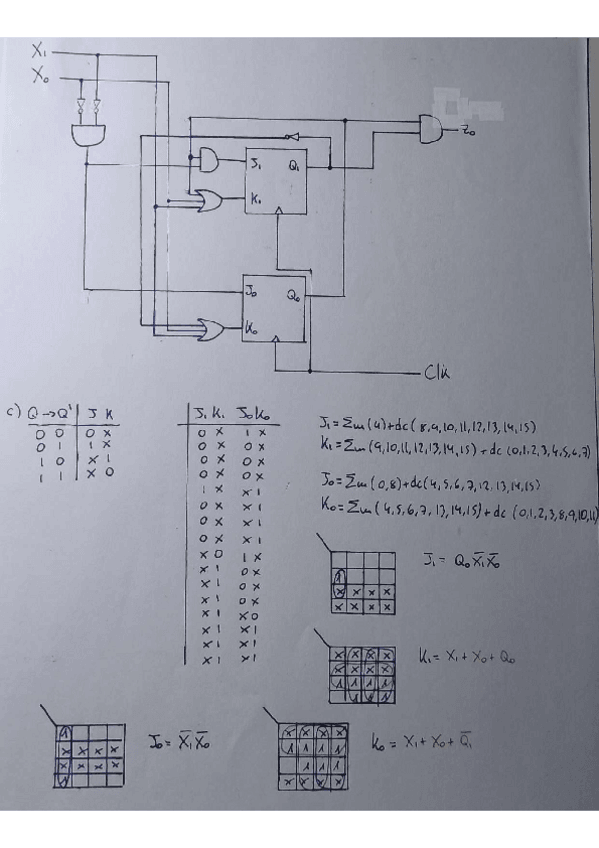 X₁
X₀
Z₀
J₁ Q₁
K₁
J₀ Q₀
K₀
Clk
c) Q → Q' J K
0 0 0 x
0 1 1 x
1 0 x 1
1 1 x 0
J₁ K₁ J₀ K₀
0 x 1 x
0 x 0 x
0 x 0 x
0 x 0 x
1 x x 1
0 x x 1
0 x x 1
0 x x 1
x 0 1 x
x 1 0 x
x 1 0 x
x 1 0 x
x 1 x 0
x 1 x 1
x 1 x 1
x 1 x 1
J₁ = Σm (4) + dc ( 8,9,10,11,12,13,14,15)
K₁ = Σm (9,10,11,12,13,14,15) + dc (0,1,2,3,4,5,6,7)
J₀ = Σm (0,8) + dc(4,5,6,7,12,13,14,15)
K₀ = Σm ( 4,5,6,7,13,14,15) + dc (0,1,2,3,8,9,10,11)
1
x x x x
x x x x
J₁ = Q₀ X̄₁X̄₀
x x x x
x x x x
1 1 1 1
1 1 1
K₁ = X₁ + X₀ + Q₀
1
x x x x
x x x x
1
J₀ = X̄₁ X̄₀
x x x x
1 1 1 1
1 1 1
x x x x
K₀ = X₁ + X₀ + Q̄₁